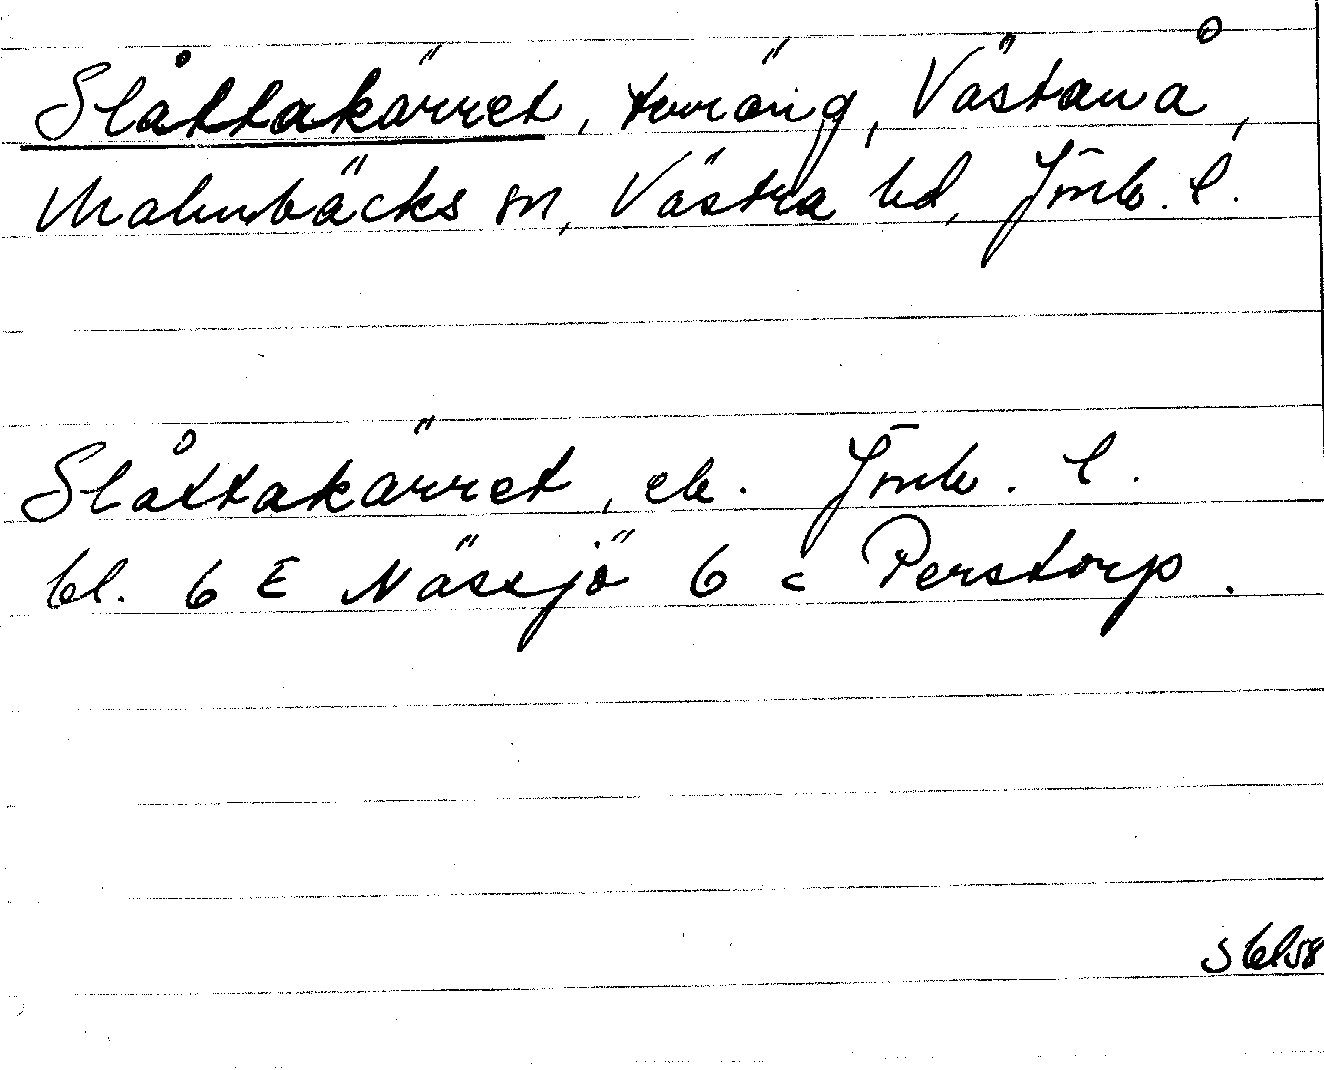 Slåttakärret, torräng, Västanå,
Malmbäcks sn, Västra hd, Jönk. l.
Slåttakärret, ek. Jönk. l.
bl. 6 E Nässjö 6 c Perstorp.